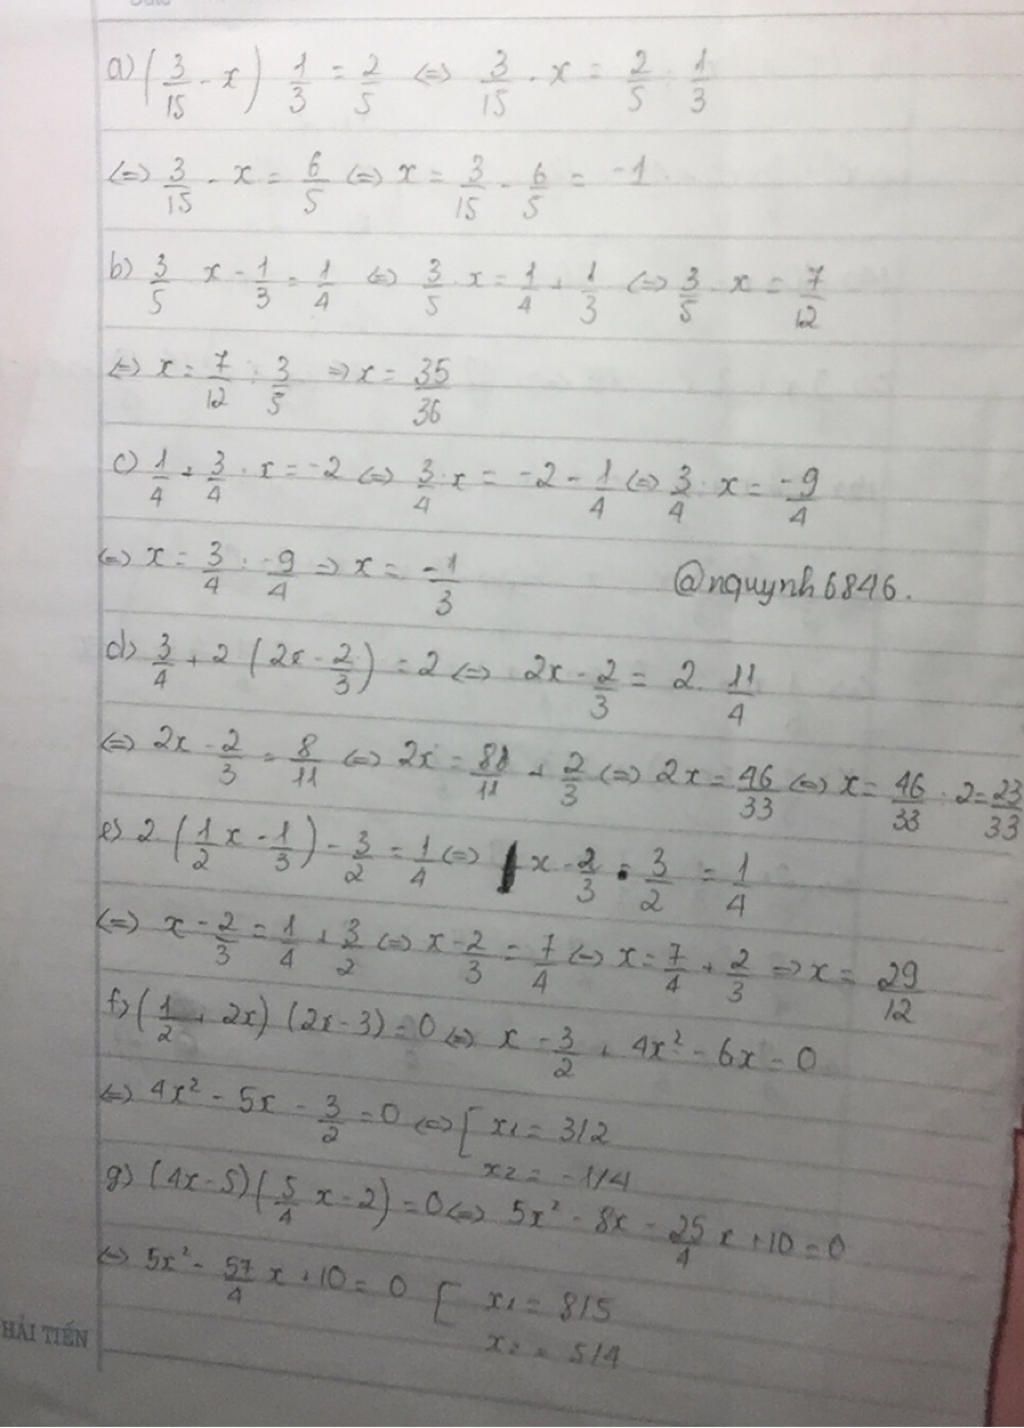 a) (3/15 - x) 1/3 = 2/5 <=> 3/15 - x = 2/5 : 1/3
<=> 3/15 - x = 6/5 <=> x = 3/15 - 6/5 = -1
b) 3/5 x - 1/3 = 1/4 <=> 3/5 . x = 1/4 + 1/3 <=> 3/5 . x = 7/12
<=> x = 7/12 : 3/5 => x = 35/36
c) 1/4 + 3/4 . x = -2 <=> 3/4 . x = -2 - 1/4 <=> 3/4 . x = -9/4
<=> x = 3/4 : -9/4 => x = -1/3
@nquynh6846.
d) 3/4 + 2 (2x - 2/3) = 2 <=> 2x - 2/3 = 2 . 11/4
<=> 2x - 2/3 = 8/11 <=> 2x = 88/11 + 2/3 <=> 2x = 46/33 <=> x = 46/33 : 2 = 23/33
e) 2 (1/2 x - 1/3) - 3/2 = 1/4 <=> x - 2/3 - 3/2 = 1/4
<=> x - 2/3 = 1/4 + 3/2 <=> x - 2/3 = 7/4 <=> x = 7/4 + 2/3 => x = 29/12
f) (1/2 + 2x) (2x - 3) = 0 <=> x - 3/2 + 4x² - 6x = 0
<=> 4x² - 5x - 3/2 = 0 <=> [ x1 = 3/2
x2 = -1/4
g) (4x - 5) (5/4 x - 2) = 0 <=> 5x² - 8x - 25/4 x + 10 = 0
<=> 5x² - 57/4 x + 10 = 0 [ x1 = 8/5
x2 = 5/4
HẢI TIẾN